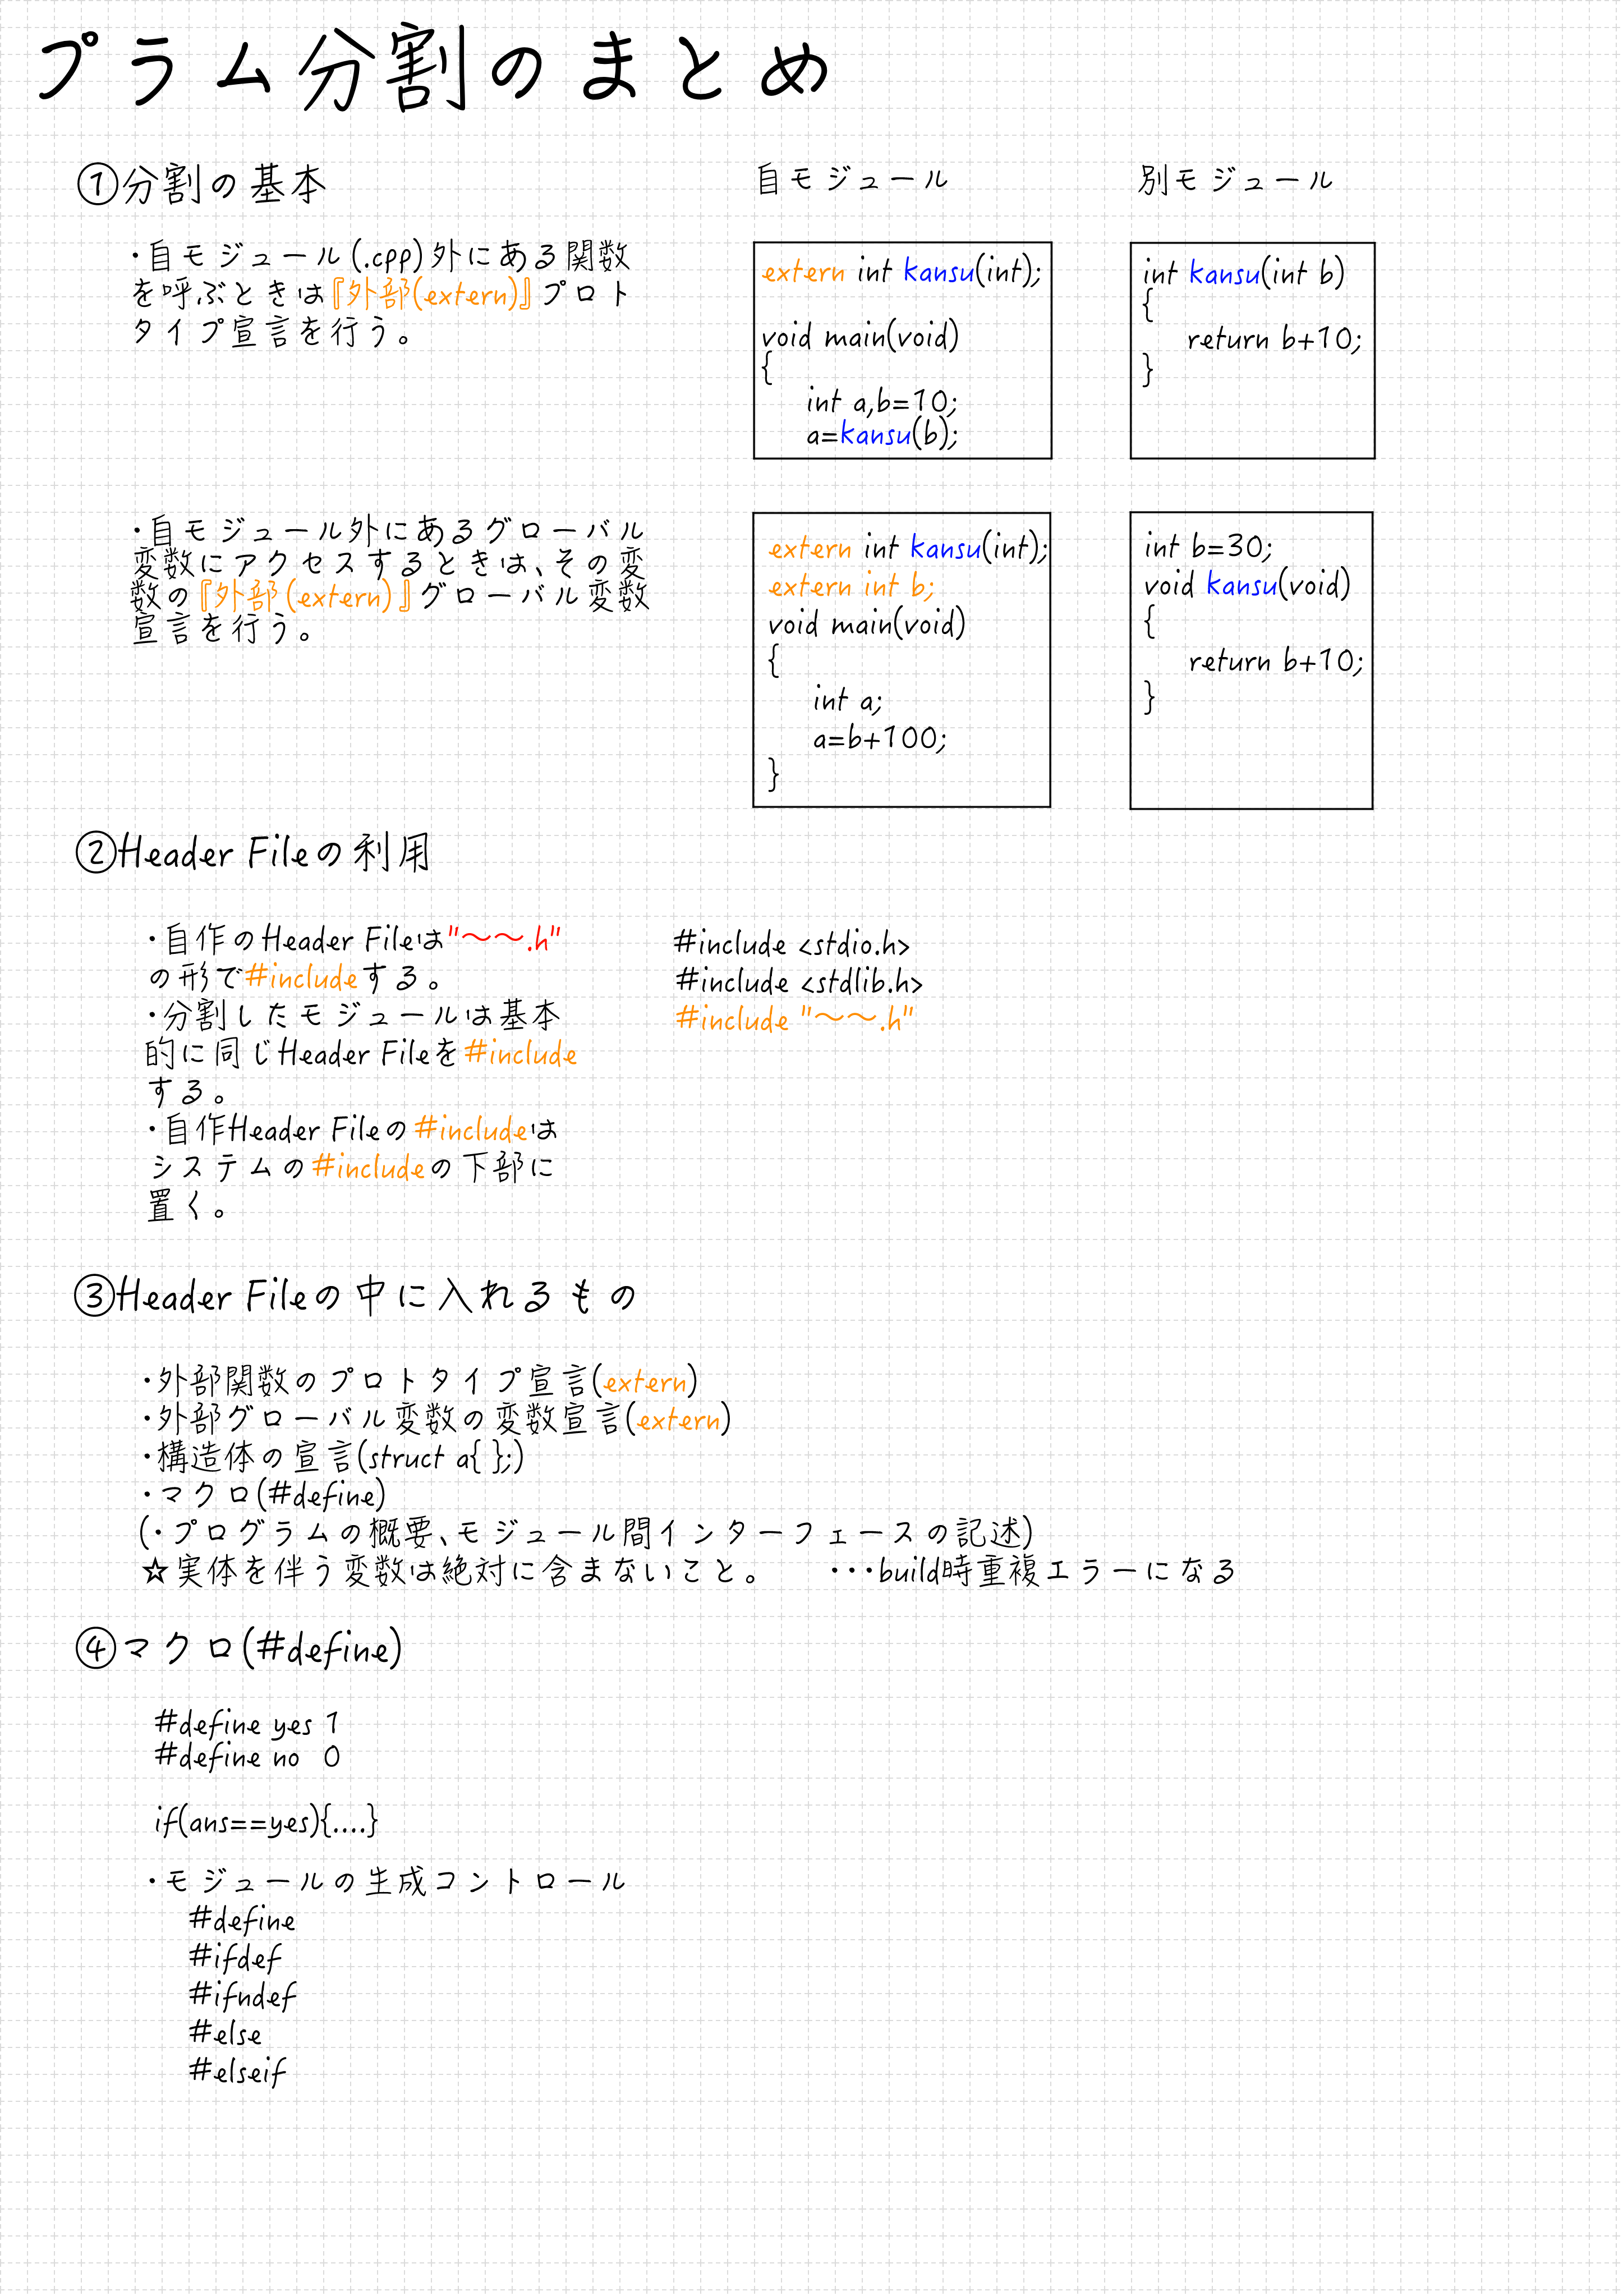 プラム分割のまとめ
①分割の基本
自モジュール
別モジュール
・自モジュール(.cpp)外にある関数
を呼ぶときは『外部(extern)』プロト
タイプ宣言を行う。
extern int kansu(int);
void main(void)
{
int a,b=10;
a=kansu(b);
int kansu(int b)
{
return b+10;
}
・自モジュール外にあるグローバル
変数にアクセスするときは、その変
数の『外部(extern)』グローバル変数
宣言を行う。
extern int kansu(int);
extern int b;
void main(void)
{
int a;
a=b+100;
}
int b=30;
void kansu(void)
{
return b+10;
}
②Header Fileの利用
・自作のHeader Fileは"～～.h"
の形で#includeする。
・分割したモジュールは基本
的に同じHeader Fileを#include
する。
・自作Header Fileの#includeは
システムの#includeの下部に
置く。
#include <stdio.h>
#include <stdlib.h>
#include "～～.h"
③Header Fileの中に入れるもの
・外部関数のプロトタイプ宣言(extern)
・外部グローバル変数の変数宣言(extern)
・構造体の宣言(struct a{ };)
・マクロ(#define)
(・プログラムの概要、モジュール間インターフェースの記述)
☆実体を伴う変数は絶対に含まないこと。 ･･･build時重複エラーになる
④マクロ(#define)
#define yes 1
#define no 0
if(ans==yes){....}
・モジュールの生成コントロール
#define
#ifdef
#ifndef
#else
#elseif